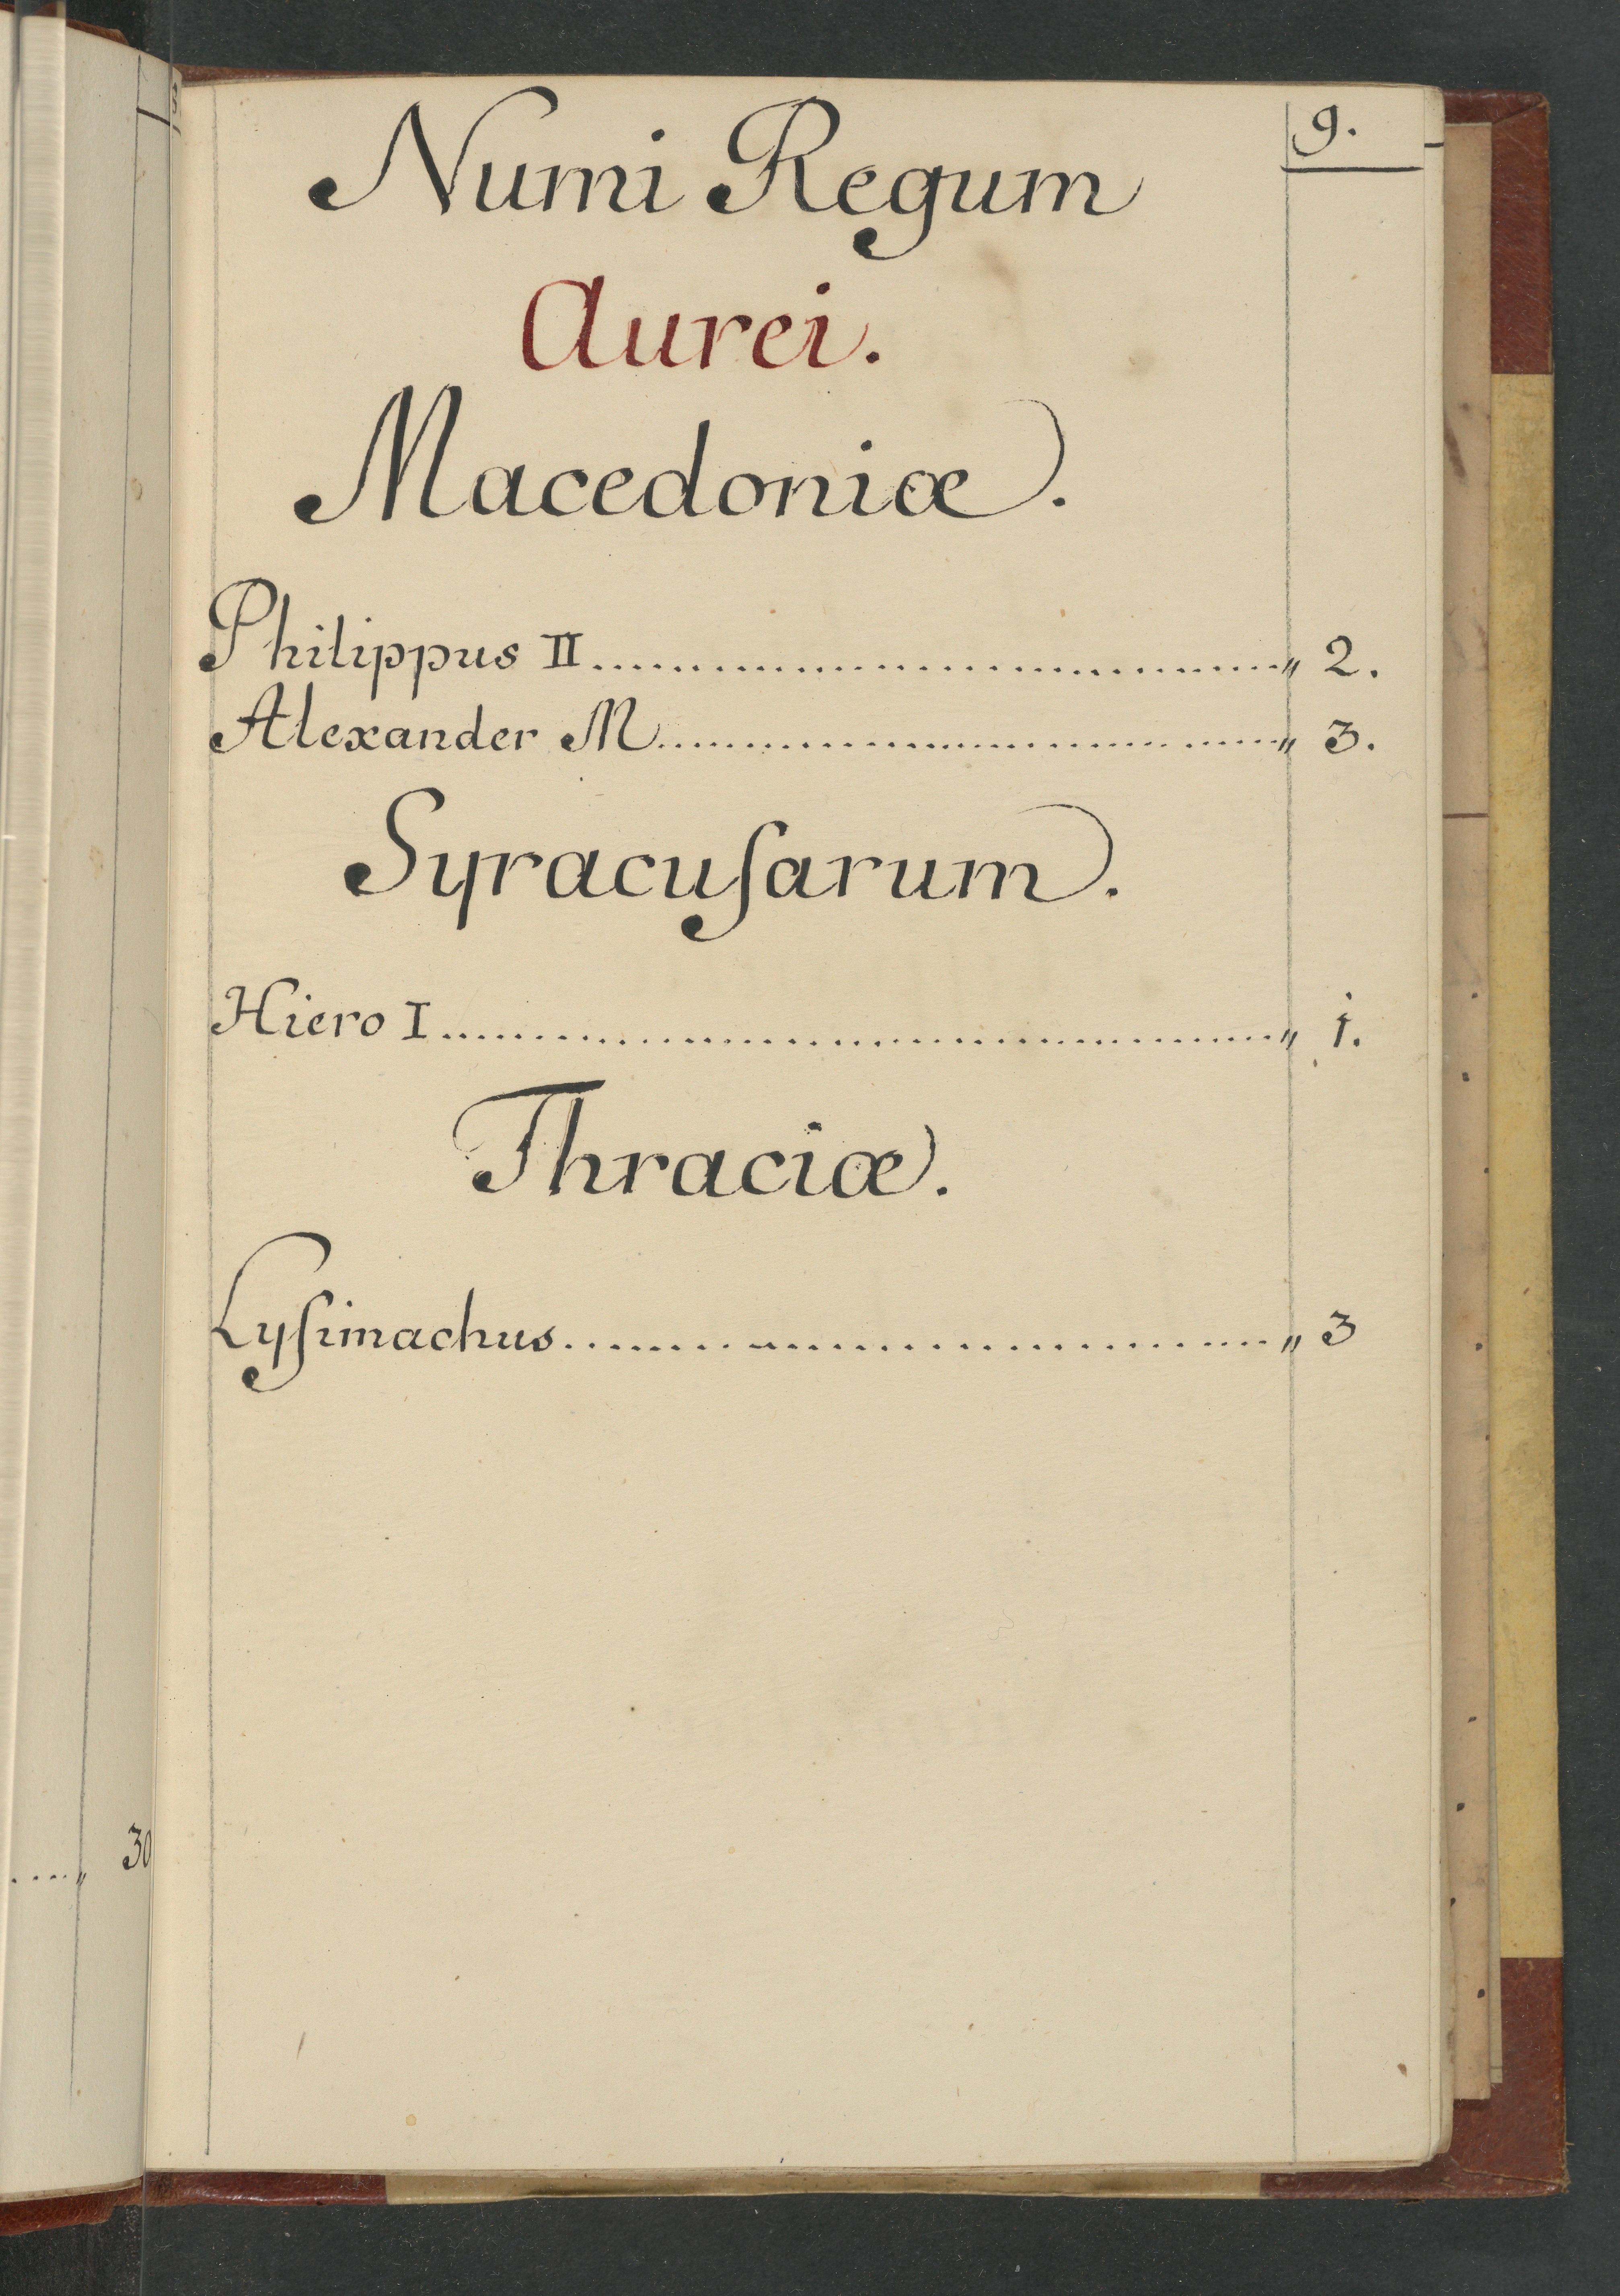 9.
Numi Regum
Aurei.
Macedoniæ.
Philippus II........................................„ 2.
Alexander M........................................„ 3.
Syracuſarum.
Hiero I........................................„ 1.
Thraciæ.
Lyſimachus........................................„ 3
....„ 30